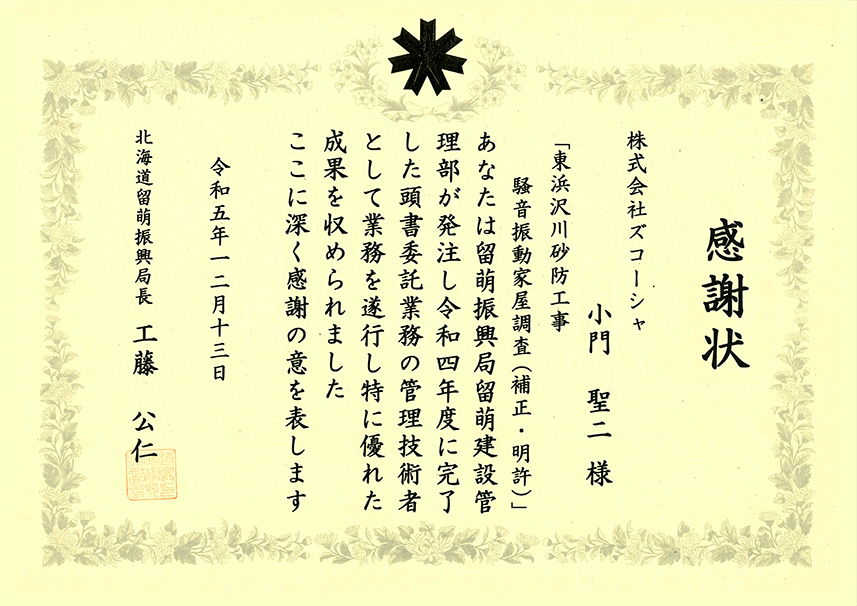 感謝状
株式会社ズコーシャ
小門 聖二 様
「東浜沢川砂防工事
騒音振動家屋調査(補正・明許)」
あなたは留萌振興局留萌建設管
理部が発注し令和四年度に完了
した頭書委託業務の管理技術者
として業務を遂行し特に優れた
成果を収められました
ここに深く感謝の意を表します
令和五年一二月十三日
北海道留萌振興局長 工藤 公仁